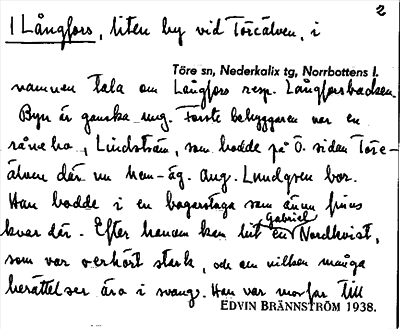 2
1 Långfors, liten by vid Töreälven, i
Töre sn, Nederkalix tg, Norrbottens l.
namnen tala om Långfors resp. Långforsbacken.
Byn är ganska ung. Förste bebyggaren var en
rånebo, Lindström, som bodde på Ö. sidan Töre-
älven där nu hem-äg. Aug. Lundgren bor.
Han bodde i en bagarstuga som ännu finns
kvar där. Efter honom kom hit en Gabriel Nordkvist,
som var oerhört stark, och om vilken många
berättelser äro i svang. Han var morfar till
EDVIN BRÄNNSTRÖM 1938.